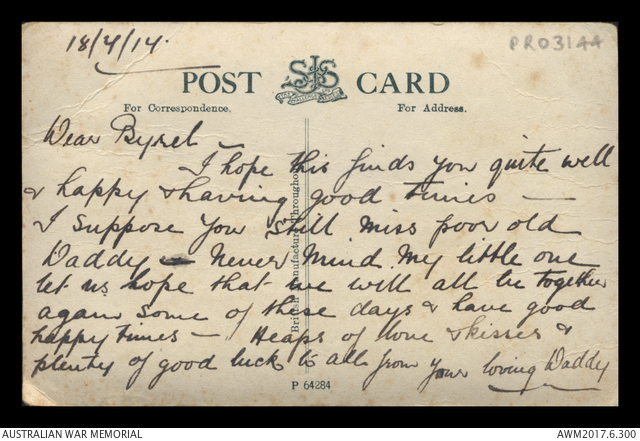 18/4/14.
PRO3144
POST CARD
For Correspondence.
For Address.
British Manufacture Throughout
Dear Byrel
I hope this finds you quite well
& happy & having good times —
I suppose you still miss poor old
Daddy — Never mind my little one
let us hope that we will all be together
again some of these days & have good
happy times — Heaps of love & kisses &
plenty of good luck to all from your loving Daddy
P 64284
AUSTRALIAN WAR MEMORIAL
AWM2017.6.300